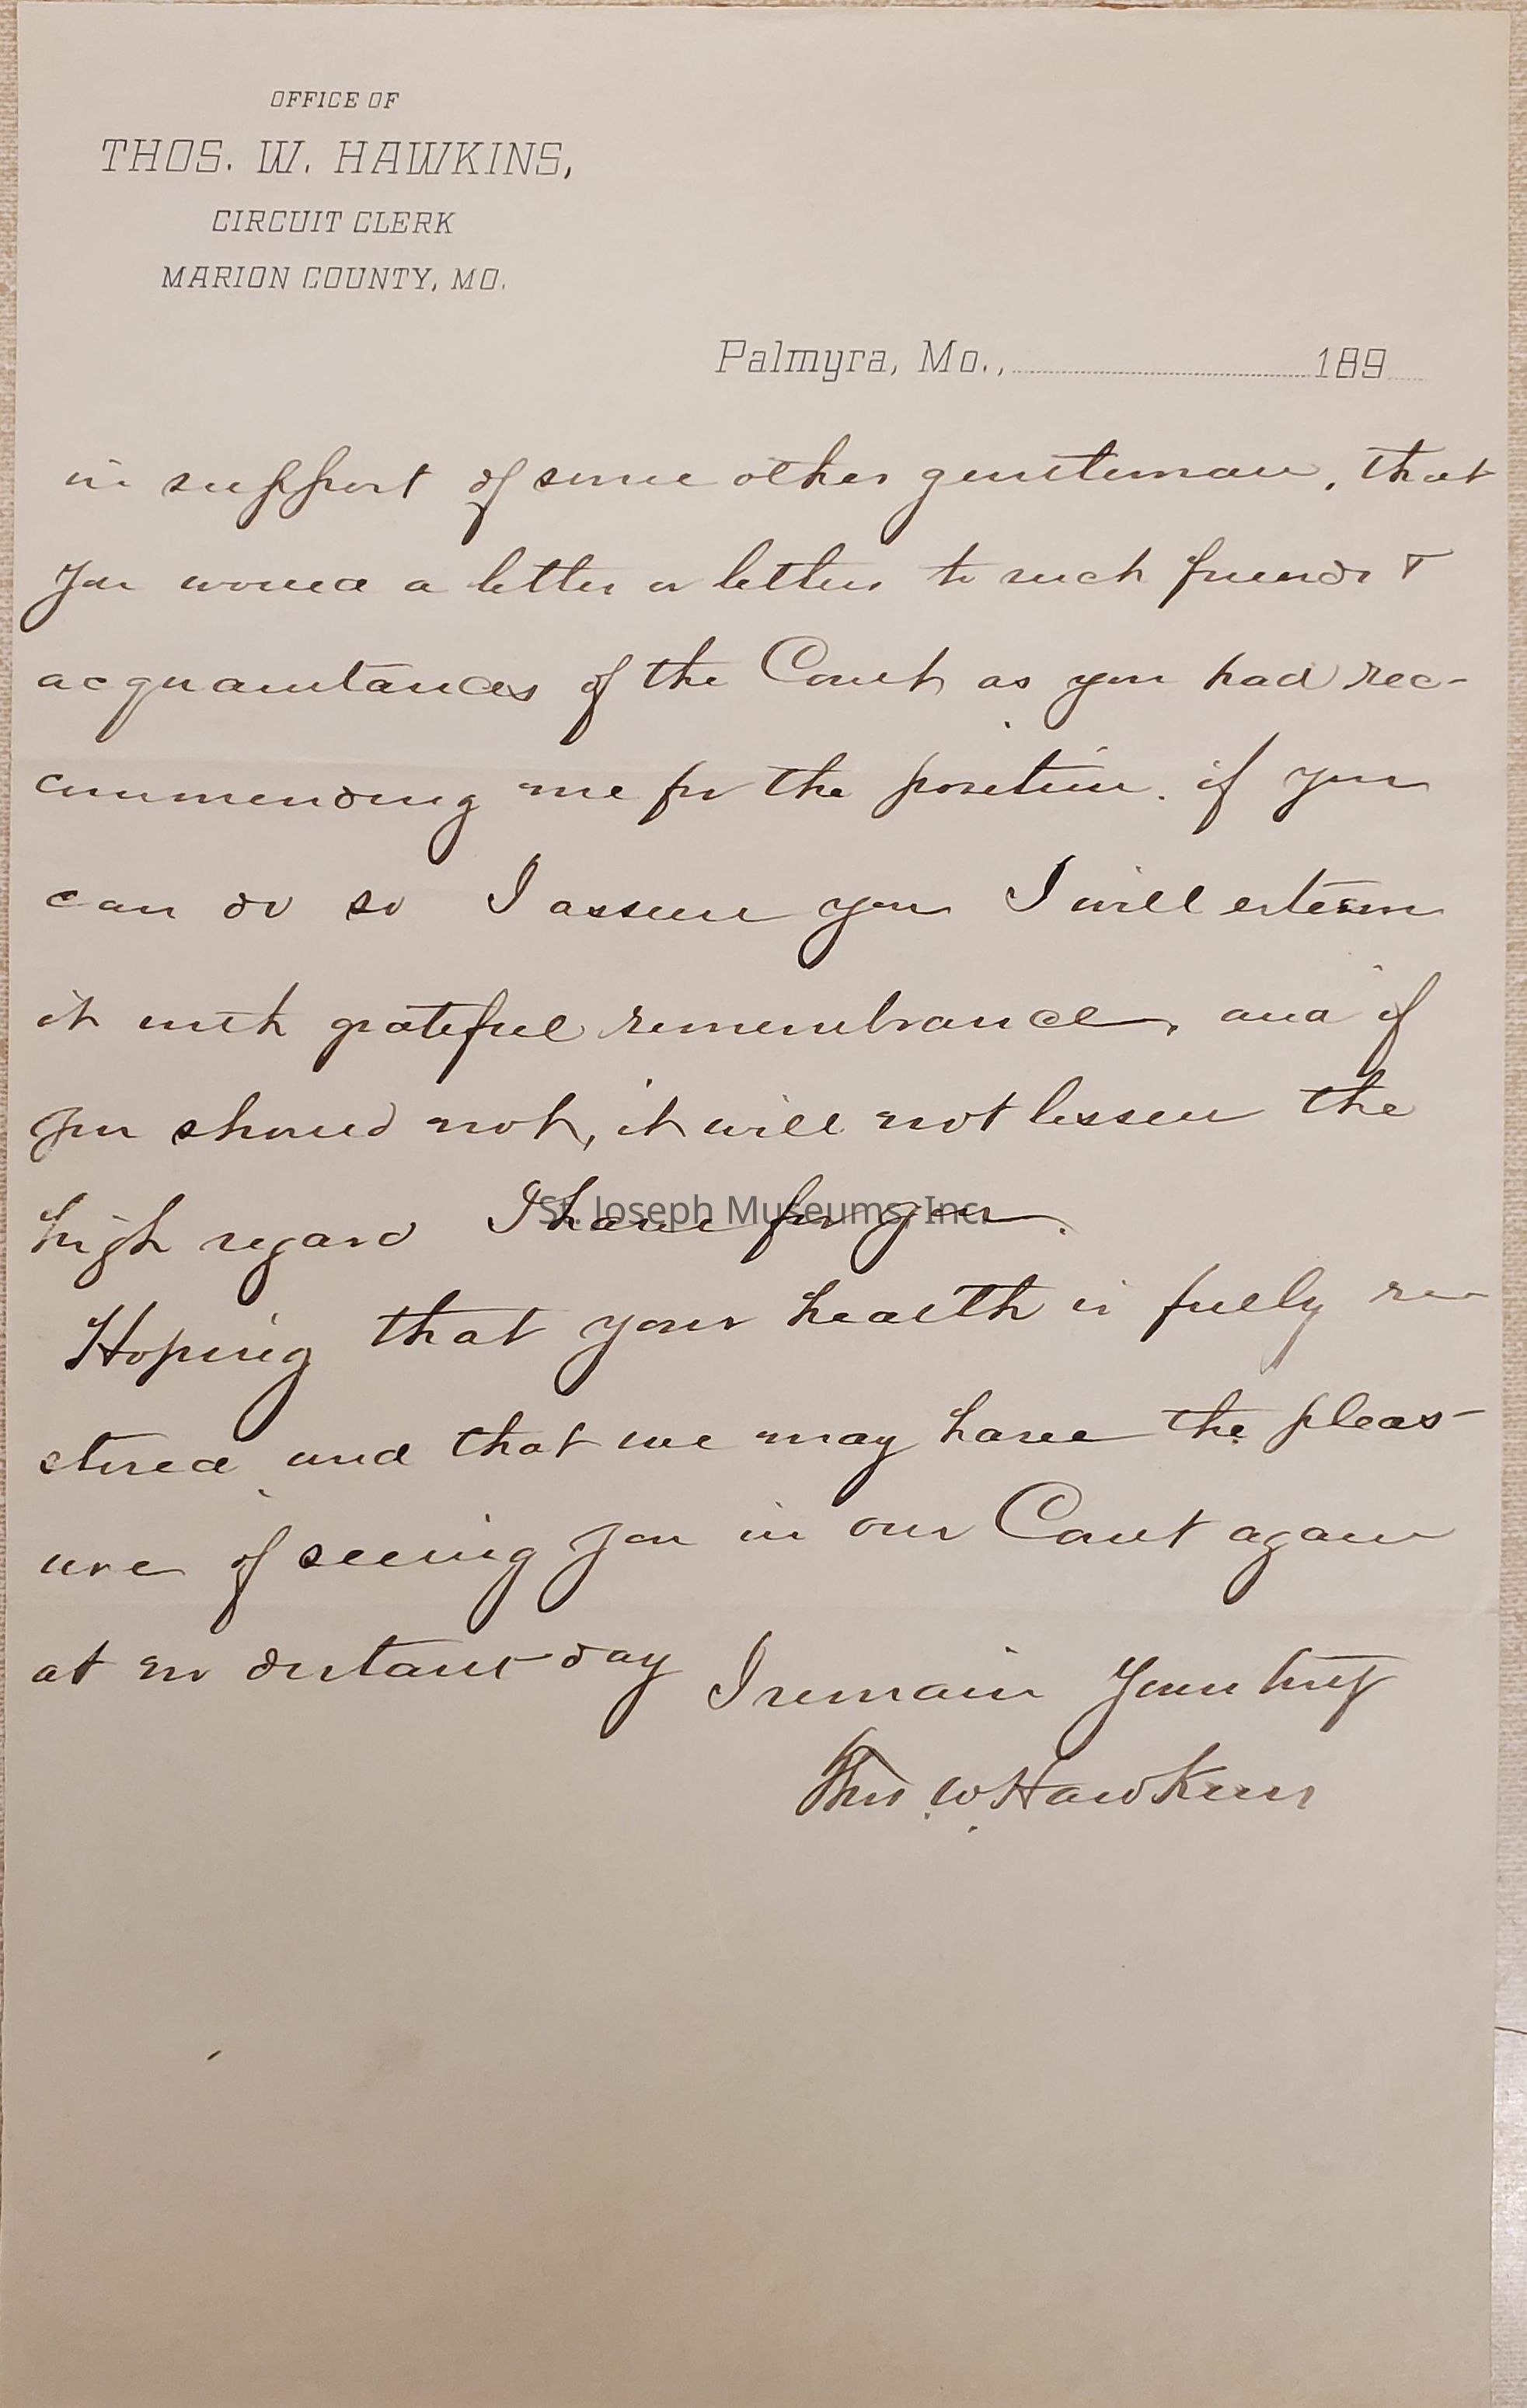 OFFICE OF
THOS. W. HAWKINS,
CIRCUIT CLERK
MARION COUNTY, MO.
Palmyra, Mo., 189
in support of some other gentleman, that
you would a letter or letters to such friends &
acquaintances of the Court as you had rec-
ommending me for the position. if you
can do so I assure you I will esteem
it with grateful remembrance, and if
you should not, it will not lessen the
high regard I have for you.
St. Joseph Museums, Inc.
Hoping that your health is fully re-
stored and that we may have the pleas-
ure of seeing you in our Court again
at no distant day I remain Yours truly
Thos. W. Hawkins